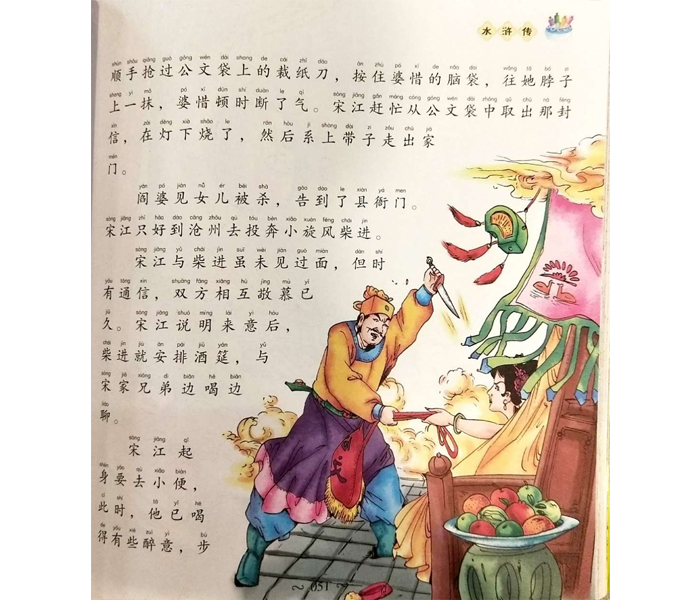 水浒传
顺手抢过公文袋上的裁纸刀，按住婆惜的脑袋，往她脖子
上一抹，婆惜顿时断了气。宋江赶忙从公文袋中取出那封
信，在灯下烧了，然后系上带子走出家
门。
阎婆见女儿被杀，告到了县衙门。
宋江只好到沧州去投奔小旋风柴进。
宋江与柴进虽未见过面，但时
有通信，双方相互敬慕已
久。宋江说明来意后，
柴进就安排酒筵，与
宋家兄弟边喝边
聊。
宋江起
身要去小便，
此时，他已喝
得有些醉意，步
051